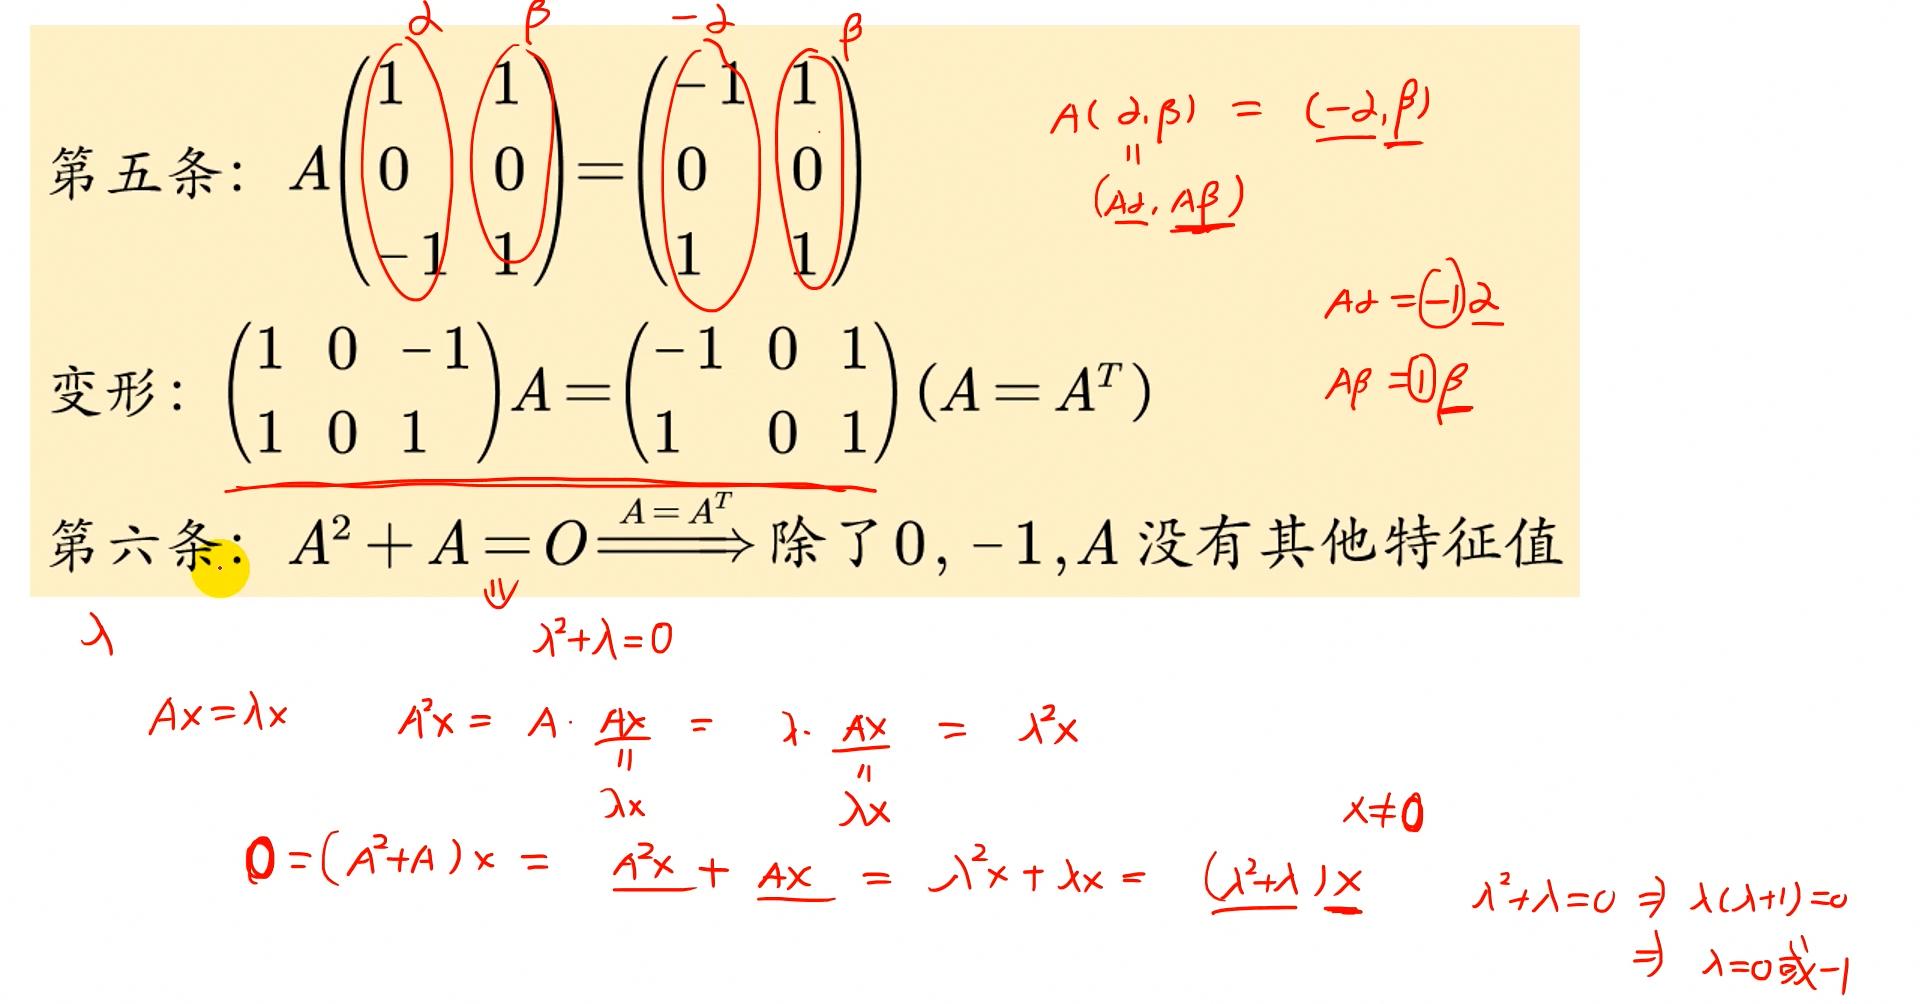 α β -α β
第五条： A(1 1 0 0 -1 1) = (-1 1 0 0 1 1) A(α,β) = (-α,β)
=
(Aα, Aβ)
Aα = (-1)α
变形： (1 0 -1 1 0 1) A = (-1 0 1 1 0 1) (A = A^T) Aβ = 1β
第六条： A² + A = O ⟹ (A = A^T) 除了0, -1, A 没有其他特征值
⇓
λ λ²+λ=0
Ax=λx A²x = A· Ax = λ· Ax = λ²x
= =
λx λx x≠0
0=(A²+A)x = A²x + Ax = λ²x + λx = (λ²+λ)x λ²+λ=0 ⇒ λ(λ+1)=0
⇒ λ=0或-1